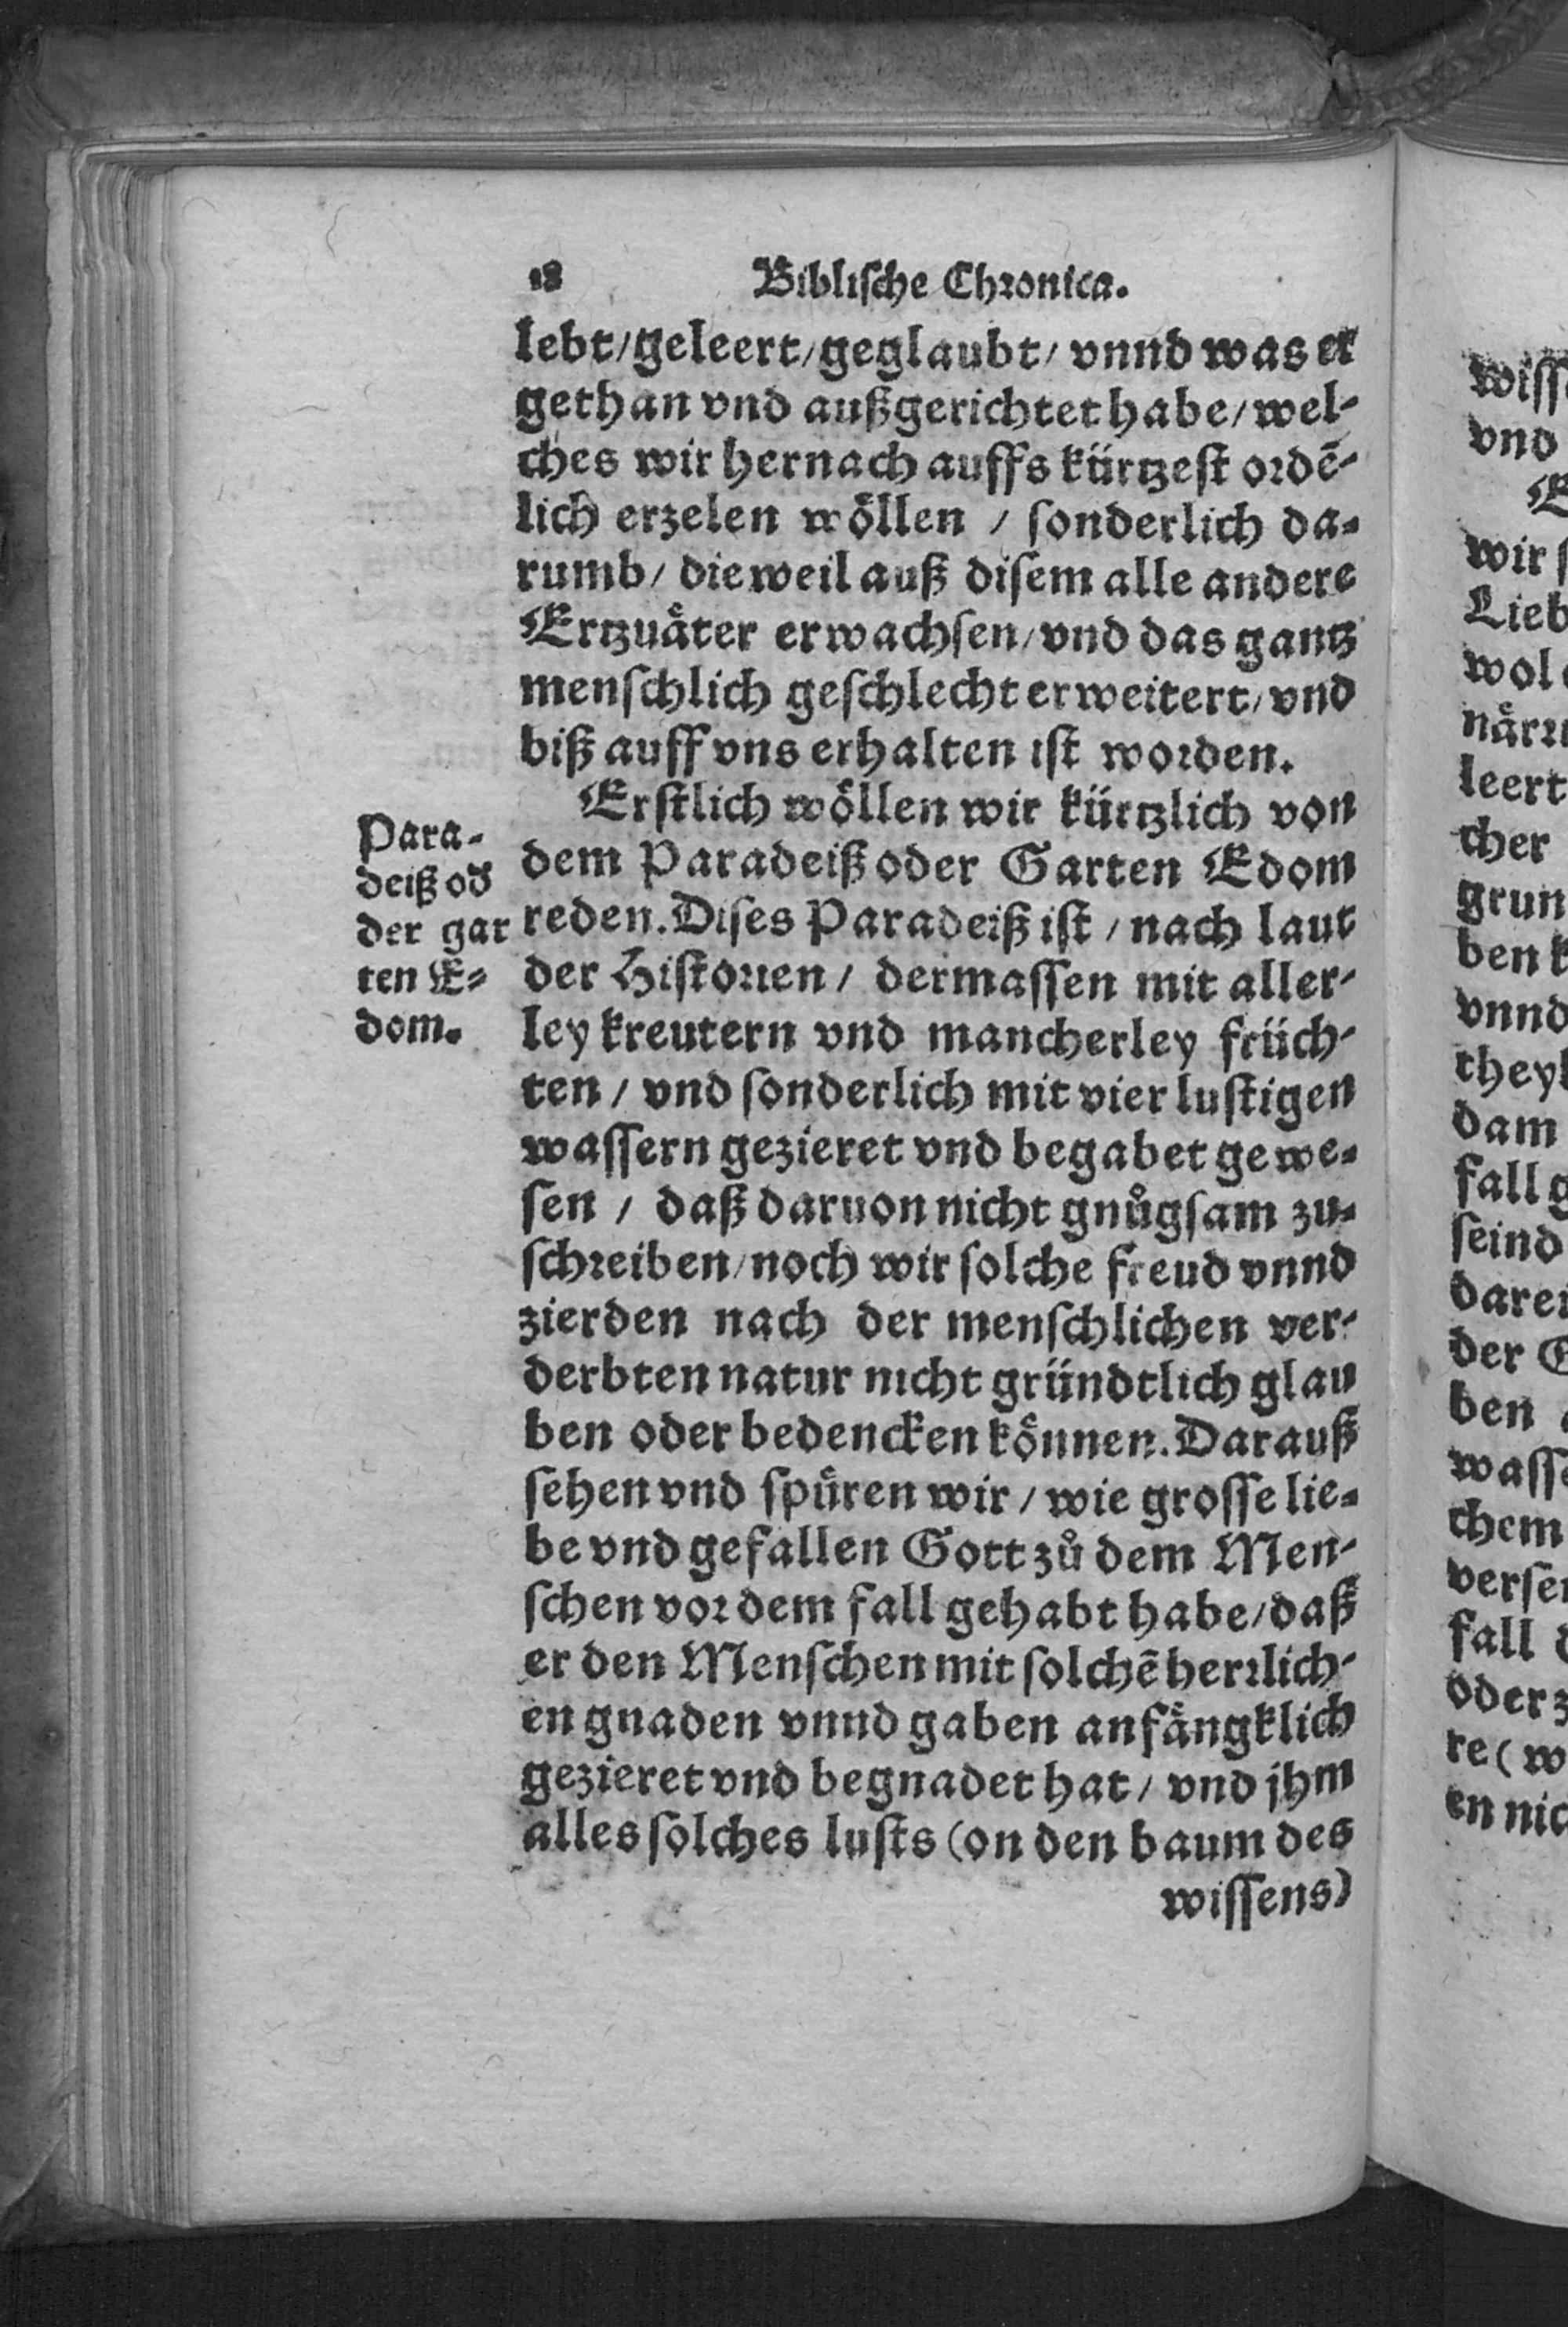 18 Biblische Chronica.
lebt/geleert/geglaubt/ vnnd was er
gethan vnd außgerichtet habe/wel-
ches wir hernach auffs kürtzest ordē-
lich erzelen wöllen / sonderlich da-
rumb/ dieweil auß disem alle andere
Ertzuäter erwachsen/vnd das gantz
menschlich geschlecht erweitert/ vnd
biß auff vns erhalten ist worden.
Erstlich wöllen wir kürtzlich von
dem Paradeiß oder Garten Edom
reden. Dises Paradeiß ist / nach laut
der Historien / dermassen mit aller-
ley kreutern vnd mancherley früch-
ten / vnd sonderlich mit vier lustigen
wassern gezieret vnd begabet gewe-
sen / daß daruon nicht gnůgsam zu-
schreiben/noch wir solche freud vnnd
zierden nach der menschlichen ver-
derbten natur nicht gründtlich glau
ben oder bedencken können. Darauß
sehen vnd spüren wir / wie grosse lie-
be vnd gefallen Gott zů dem Men-
schen vor dem fall gehabt habe/daß
er den Menschen mit solchē herrlich-
en gnaden vnnd gaben anfängklich
gezieret vnd begnadet hat / vnd jhm
alles solches lusts (on den baum des
wissens)
Para-
deiß od
der gar
ten E-
dom.
wiss
vnd
wir s
Lieb
wol
närri
leert
cher
grun
ben k
vnnd
they
dam
fall g
seind
daren
der G
ben
wasse
chem
verse
fall d
oder z
re (w
en nic